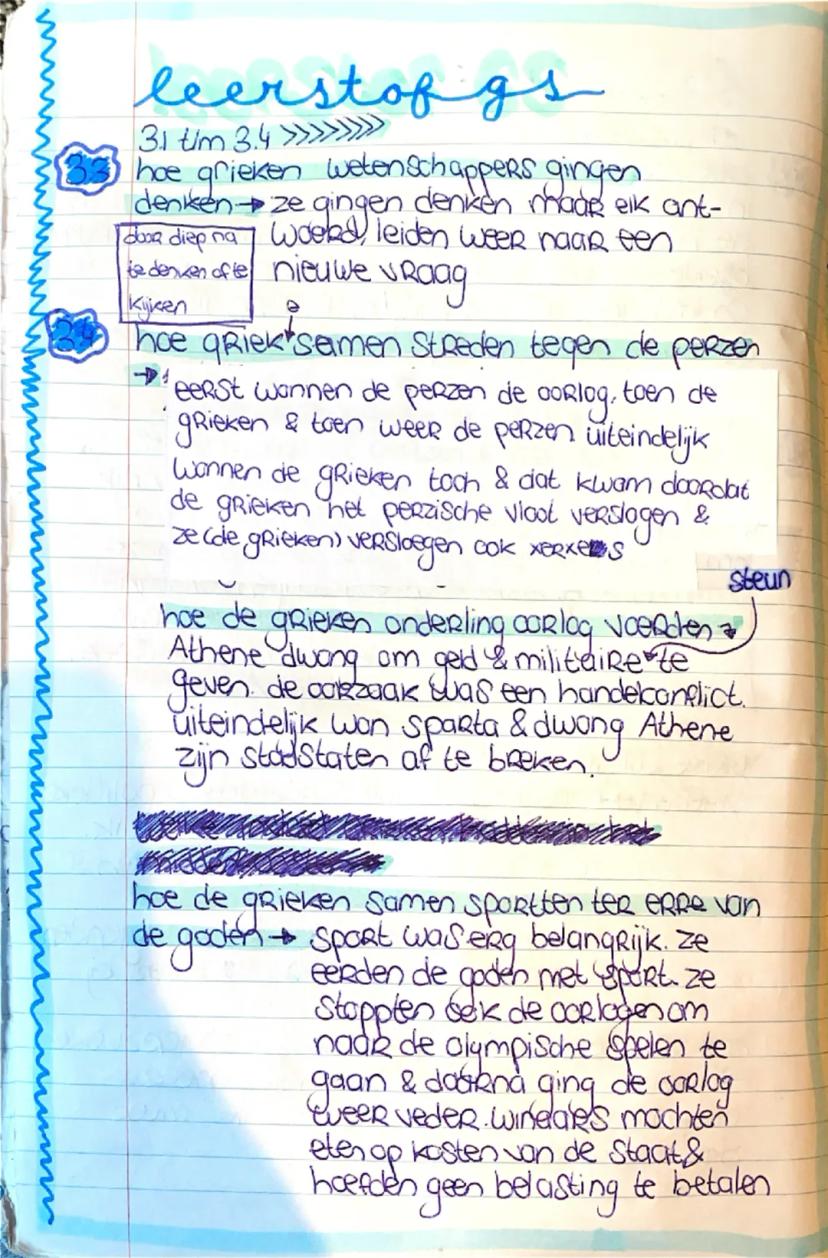 leerstof gs
3.1 t/m 3.4 >>>>>>>>
3.3
hoe grieken wetenschappers gingen
denken → ze gingen denken maar elk ant-
woord, leiden weer naar een
nieuwe vraag
door diep na
te denken of te
kijken
3.4
e
hoe griek samen streden tegen de perzen
→ eerst wonnen de perzen de oorlog, toen de
grieken & toen weer de perzen uiteindelijk
wonnen de grieken toch & dat kwam doordat
de grieken het perzische vloot verslogen &
ze (de grieken) versloegen ook xerxes
steun
hoe de grieken onderling oorlog voerden →
Athene dwong om geld & militaire te
geven. de oorzaak was een handelconflict.
uiteindelijk won sparta & dwong Athene
zijn stadstaten af te breken.
hoe de grieken samen sportten ter erre van
de goden → sport was erg belangrijk. ze
eerden de goden met sport. ze
stopten ook de oorlogen om
naar de olympische spelen te
gaan & daarna ging de oorlog
weer veder. winears mochten
eten op kosten van de staat &
hoefden geen belasting te betalen